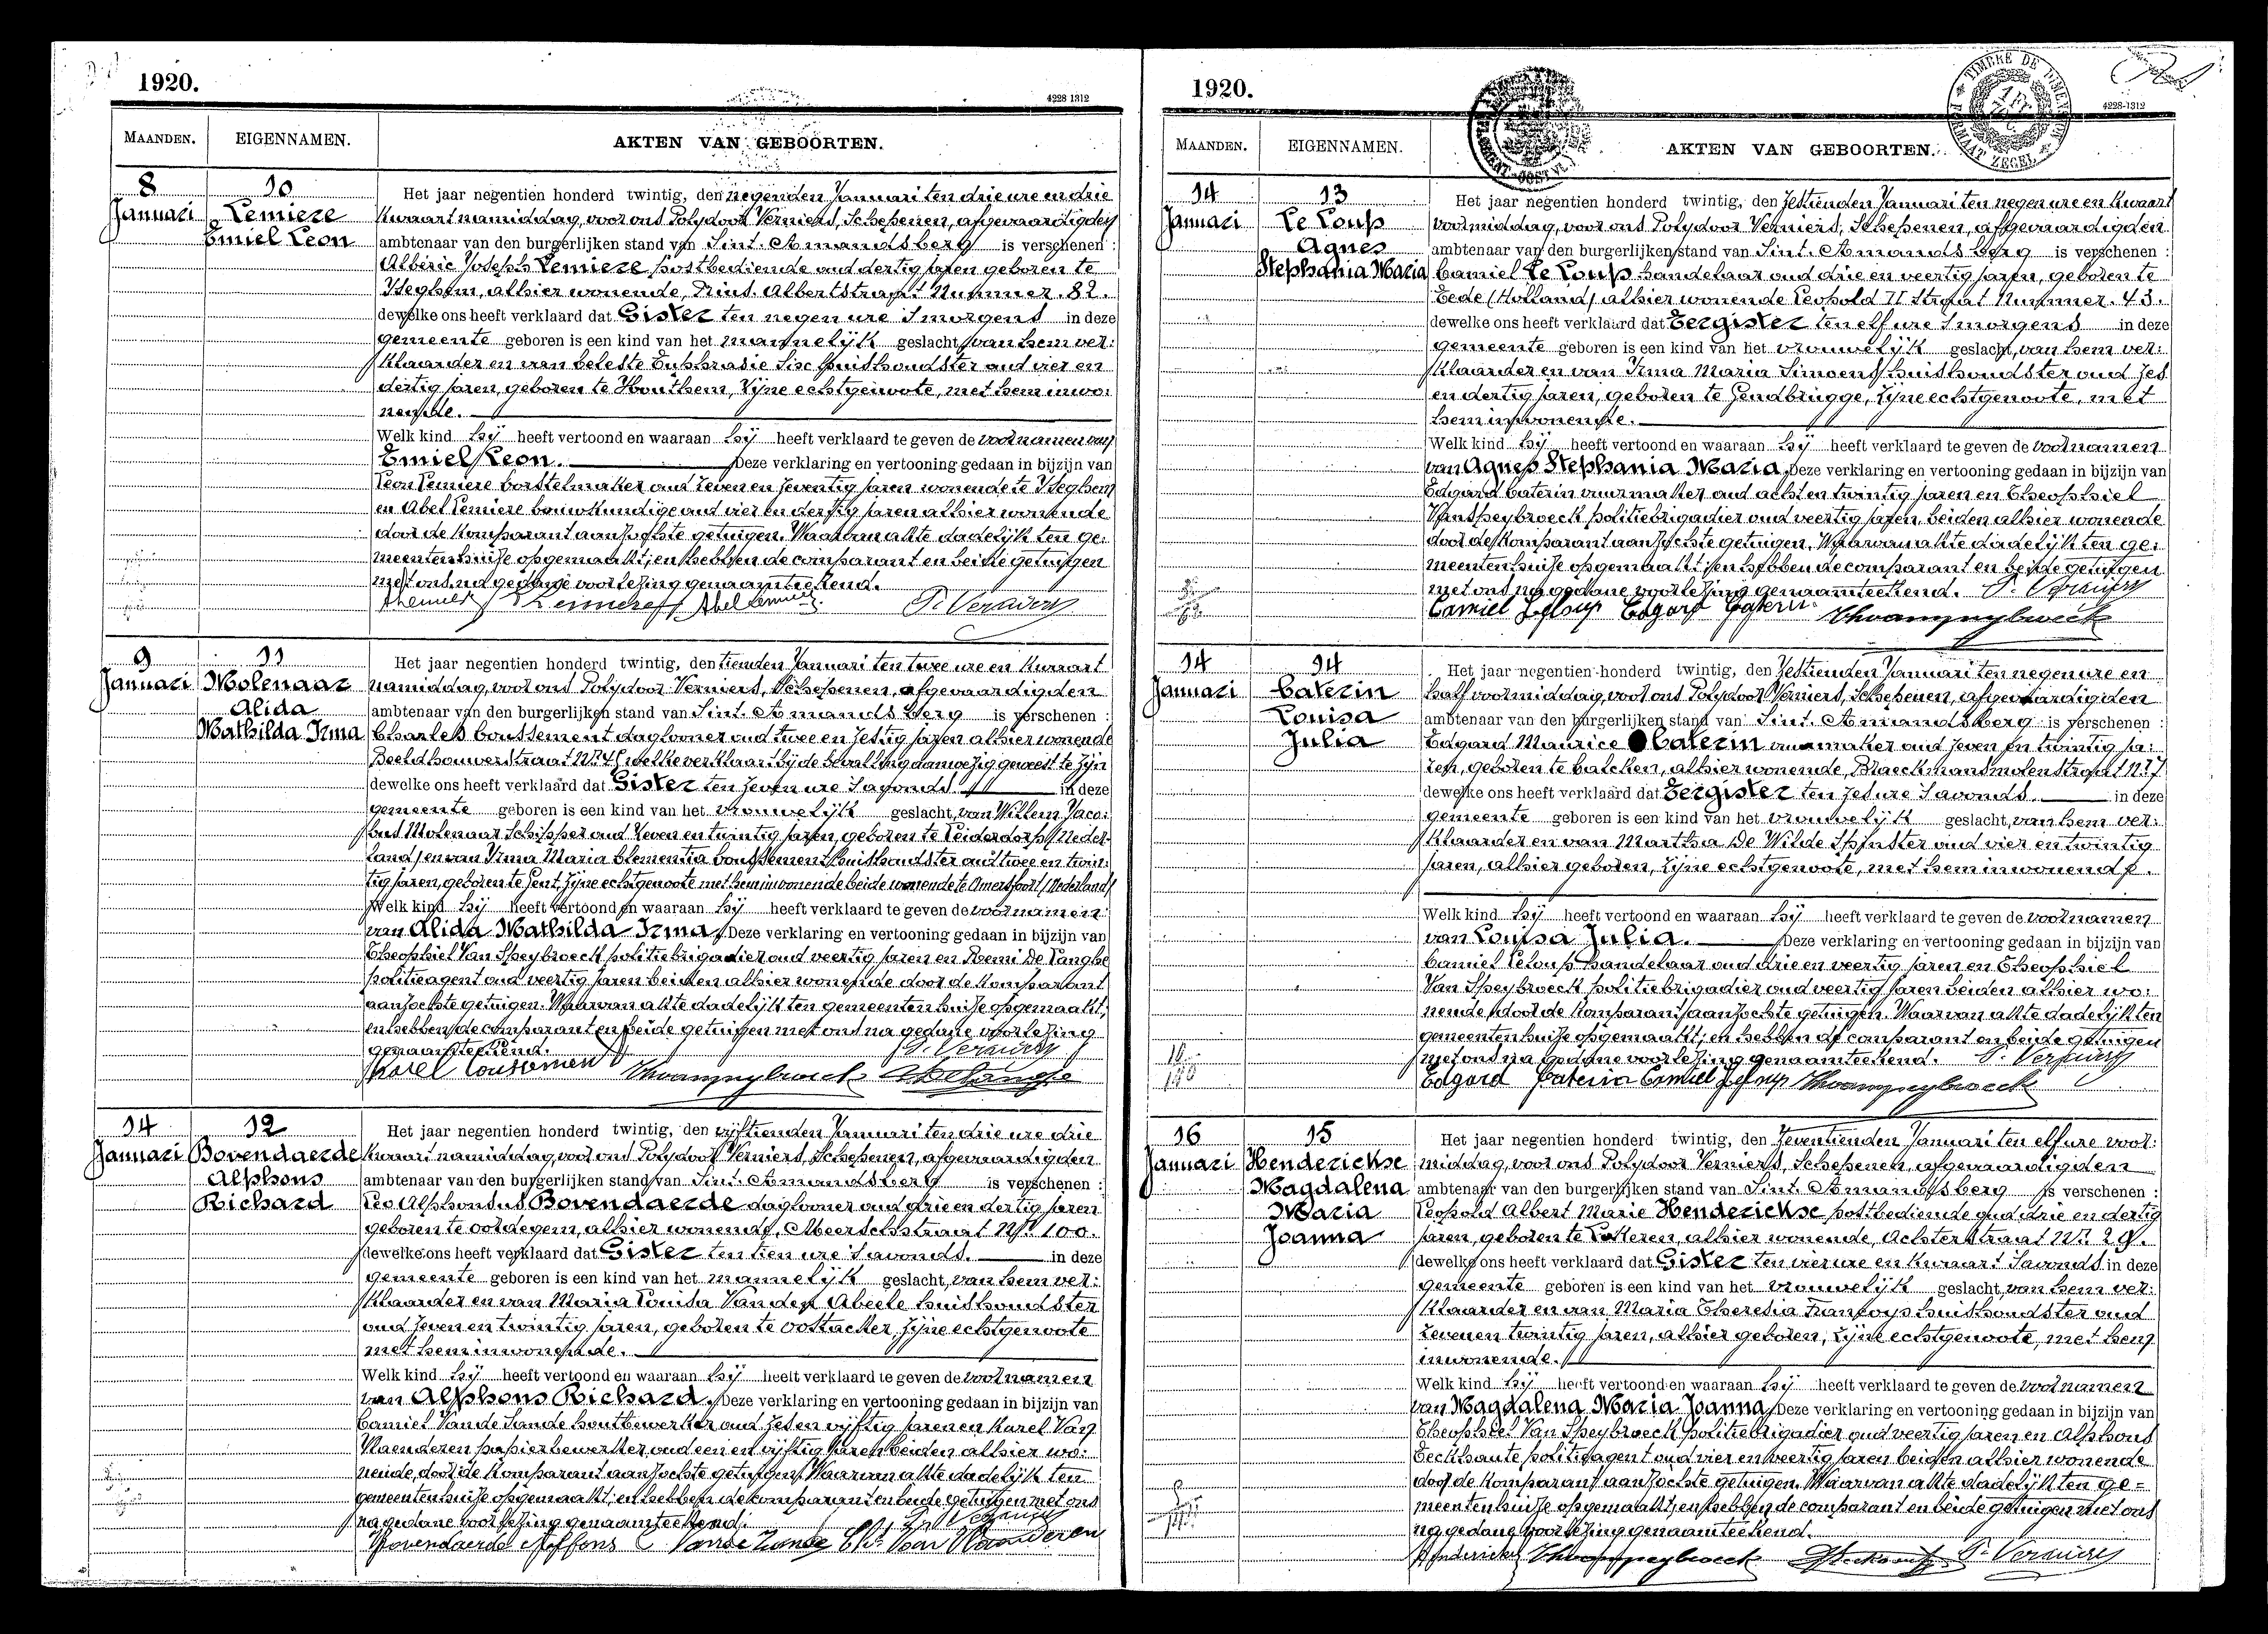 1920.
4228-1312
MAANDEN.
EIGENNAMEN.
AKTEN VAN GEBOORTEN.
8
Januari
10
Lemiere
Emiel Leon
Het jaar negentien honderd twintig, den negenden Januari ten drie ure en drie
kwaart namiddag, voor ons Polydoor Verniers, Schepenen, afgevaardigden
ambtenaar van den burgerlijken stand van Sint-Amandsberg is verschenen :
Alberic Joseph Lemiere postbediende oud dertig jaren geboren te
Iseghem, alhier wonende, Prins Albertstraat Nummer 82.
dewelke ons heeft verklaard dat Gister ten negen ure 's morgens in deze
gemeente geboren is een kind van het mannelijk geslacht, van hem ver:
klaarder en van Celeste Euphrasie huishoudster oud vier en
dertig jaren, geboren te Houthem, zijne echtgenoote, met hem inwo:
nende.
Welk kind hij heeft vertoond en waaraan hij heeft verklaard te geven de voornamen van
Emiel Leon. Deze verklaring en vertooning gedaan in bijzijn van
Leon Lemiere borstelmaker oud zeven en zeventig jaren wonende te Iseghem
en Abel Lemiere bouwkundige oud vier en dertig jaren alhier wonende
door de komparant aanzochte getuigen. Waarvan akte dadelijk ten ge:
meentenhuise opgemaakt; en hebben de comparant en beide getuigen
met ons na gedane voorlezing genaamteekend.
9
Januari
11
Molenaar
Alida
Mathilda Irma
Het jaar negentien honderd twintig, den tienden Januari ten twee ure en kwaart
namiddag, voor ons Polydoor Verniers, Schepenen, afgevaardigden
ambtenaar van den burgerlijken stand van Sint-Amandsberg is verschenen :
Charles Coussement daglooner oud twee en zestig jaren alhier wonende
Beeldhouwerstraat welke verklaart bij de bevalling aanwezig geweest te zijn
dewelke ons heeft verklaard dat Gister ten zeven ure 's avonds in deze
gemeente geboren is een kind van het vrouwelijk geslacht, van Willem Jaco:
bus Molenaar Schipper oud zeven en twintig jaren, geboren te Leiderdorp (Neder-
land) en van Irma Maria Clementia Coussement huishoudster oud twee en twin:
tig jaren, geboren te Gent, zijne echtgenoote met hem inwonende beide wonende te Amersfoort (Nederland)
Welk kind hij heeft vertoond en waaraan hij heeft verklaard te geven de voornamen
van Alida Mathilda Irma, Deze verklaring en vertooning gedaan in bijzijn van
Theophiel Van Speybroeck politiebrigadier oud veertig jaren en Remi De Langhe
politieagent oud veertig jaren beiden alhier wonende door de komparant
aanzochte getuigen. Waarvan akte dadelijk ten gemeentenhuise opgemaakt;
en hebben de comparant en beide getuigen met ons na gedane voorlezing
genaamteekend.
Karel Coussement
14
Januari
12
Bovendaerde
Alphons
Richard
Het jaar negentien honderd twintig, den vijftienden Januari ten drie ure drie
kwaart namiddag, voor ons Polydoor Verniers, Schepenen, afgevaardigden
ambtenaar van den burgerlijken stand van Sint-Amandsberg is verschenen :
Leo Alphonsus Bovendaerde daglooner oud drie en dertig jaren
geboren te Oordegem, alhier wonende, Meerschstraat Nr. 100.
dewelke ons heeft verklaard dat Gister ten tien ure 's avonds. in deze
gemeente geboren is een kind van het mannelijk geslacht, van hem ver:
klaarder en van Maria Louisa Van den Abeele huishoudster
oud zeven en twintig jaren, geboren te Oostacker, zijne echtgenoote
met hem inwonende.
Welk kind hij heeft vertoond en waaraan hij heeft verklaard te geven de voornamen
van Alphons Richard, Deze verklaring en vertooning gedaan in bijzijn van
Camiel Van de Sande houtbewerker oud zes en vijftig jaren en Karel Van
Vlaenderen papierbewerker oud een en vijftig jaren beiden alhier wo:
nende, door de komparant aanzochte getuigen. Waarvan akte dadelijk ten
gemeentenhuise opgemaakt; en hebben de komparant en beide getuigen met ons
na gedane voorlezing genaamteekend.
Bovendaerde Alfons
1920.
4228-1312
MAANDEN.
EIGENNAMEN.
AKTEN VAN GEBOORTEN.
14
Januari
13
Le Loup
Agnes
Stephania Maria
Het jaar negentien honderd twintig, den zestienden Januari ten negen ure en kwaart
voormiddag, voor ons Polydoor Verniers, Schepenen, afgevaardigden
ambtenaar van den burgerlijken stand van Sint-Amandsberg is verschenen :
Camiel Le Loup handelaar oud drie en veertig jaren, geboren te
Eede (Holland) alhier wonende Leopold II Straat Nummer 43.
dewelke ons heeft verklaard dat Eergister ten elf ure 's morgens in deze
gemeente geboren is een kind van het vrouwelijk geslacht, van hem ver:
klaarder en van Irma Maria Simoens huishoudster oud zes
en dertig jaren, geboren te Gendbrugge, zijne echtgenoote, met
hem inwonende.
Welk kind hij heeft vertoond en waaraan hij heeft verklaard te geven de voornamen
van Agnes Stephania Maria, Deze verklaring en vertooning gedaan in bijzijn van
Edgard Caterin vuurmaker oud acht en twintig jaren en Theophiel
Van Speybroeck politiebrigadier oud veertig jaren, beiden alhier wonende
door de komparant aanzochte getuigen. Waarvan akte dadelijk ten ge:
meentenhuise opgemaakt; en hebben de comparant en beide getuigen
met ons na gedane voorlezing genaamteekend.
Camiel Leloup Edgard Caterin
14
Januari
14
Caterin
Louisa
Julia
Het jaar negentien honderd twintig, den zestienden Januari ten negen ure en
half voormiddag, voor ons Polydoor Verniers, Schepenen, afgevaardigden
ambtenaar van den burgerlijken stand van Sint-Amandsberg is verschenen :
Edgard Maurice Caterin vuurmaker oud zeven en twintig ja:
ren, geboren te Calcken, alhier wonende, Braeckmansmolenstraat Nr. 7
dewelke ons heeft verklaard dat Eergister ten zes ure 's avonds. in deze
gemeente geboren is een kind van het vrouwelijk geslacht, van hem ver:
klaarder en van Martha De Wilde Spinster oud vier en twintig
jaren, alhier geboren, zijne echtgenoote, met hem inwonende.
Welk kind hij heeft vertoond en waaraan hij heeft verklaard te geven de voornamen
van Louisa Julia. Deze verklaring en vertooning gedaan in bijzijn van
Camiel Leloup handelaar oud drie en veertig jaren en Theophiel
Van Speybroeck politiebrigadier oud veertig jaren beiden alhier wo:
nende door de komparant aanzochte getuigen. Waarvan akte dadelijk ten
gemeentenhuise opgemaakt; en hebben de comparant en beide getuigen
met ons na gedane voorlezing genaamteekend.
Edgard Caterin Camiel Leloup
16
Januari
15
Henderickse
Magdalena
Maria
Joanna
Het jaar negentien honderd twintig, den zeventienden Januari ten elf ure voor:
middag, voor ons Polydoor Verniers, Schepenen, afgevaardigden
ambtenaar van den burgerlijken stand van Sint-Amandsberg is verschenen :
Leopold Albert Marie Henderickse postbediende oud drie en dertig
jaren, geboren te alhier wonende, Achterstraat Nr. 29.
dewelke ons heeft verklaard dat Gister ten vier ure en kwaart 's avonds in deze
gemeente geboren is een kind van het vrouwelijk geslacht, van hem ver:
klaarder en van Maria Theresia Francoys huishoudster oud
zeven en twintig jaren, alhier geboren, zijne echtgenoote, met hem
inwonende.
Welk kind hij heeft vertoond en waaraan hij heeft verklaard te geven de voornamen
van Magdalena Maria Joanna, Deze verklaring en vertooning gedaan in bijzijn van
Theophiel Van Speybroeck politiebrigadier oud veertig jaren en Alphons
Eeckhaute politieagent oud vier en veertig jaren beiden alhier wonende
door de komparant aanzochte getuigen. Waarvan akte dadelijk ten ge=
meentenhuise opgemaakt; en hebben de comparant en beide getuigen met ons
na gedane voorlezing genaamteekend.